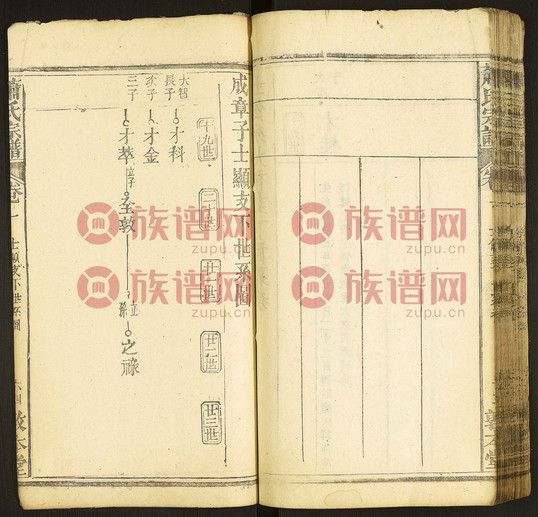 成章子士顯支下世系圖
十九世
二十世
廿一世
廿二世
廿三世
大智
長子
才科
次子
才金
三子
才萃
至敦
之祿
蕭氏宗譜
卷一
士顯支下世系圖
六四
敦本堂
蕭氏宗譜
敦本堂
族谱网
zupu.cn
族谱网
zupu.cn
族谱网
zupu.cn
族谱网
zupu.cn
族谱网
zupu.cn
族谱网
zupu.cn